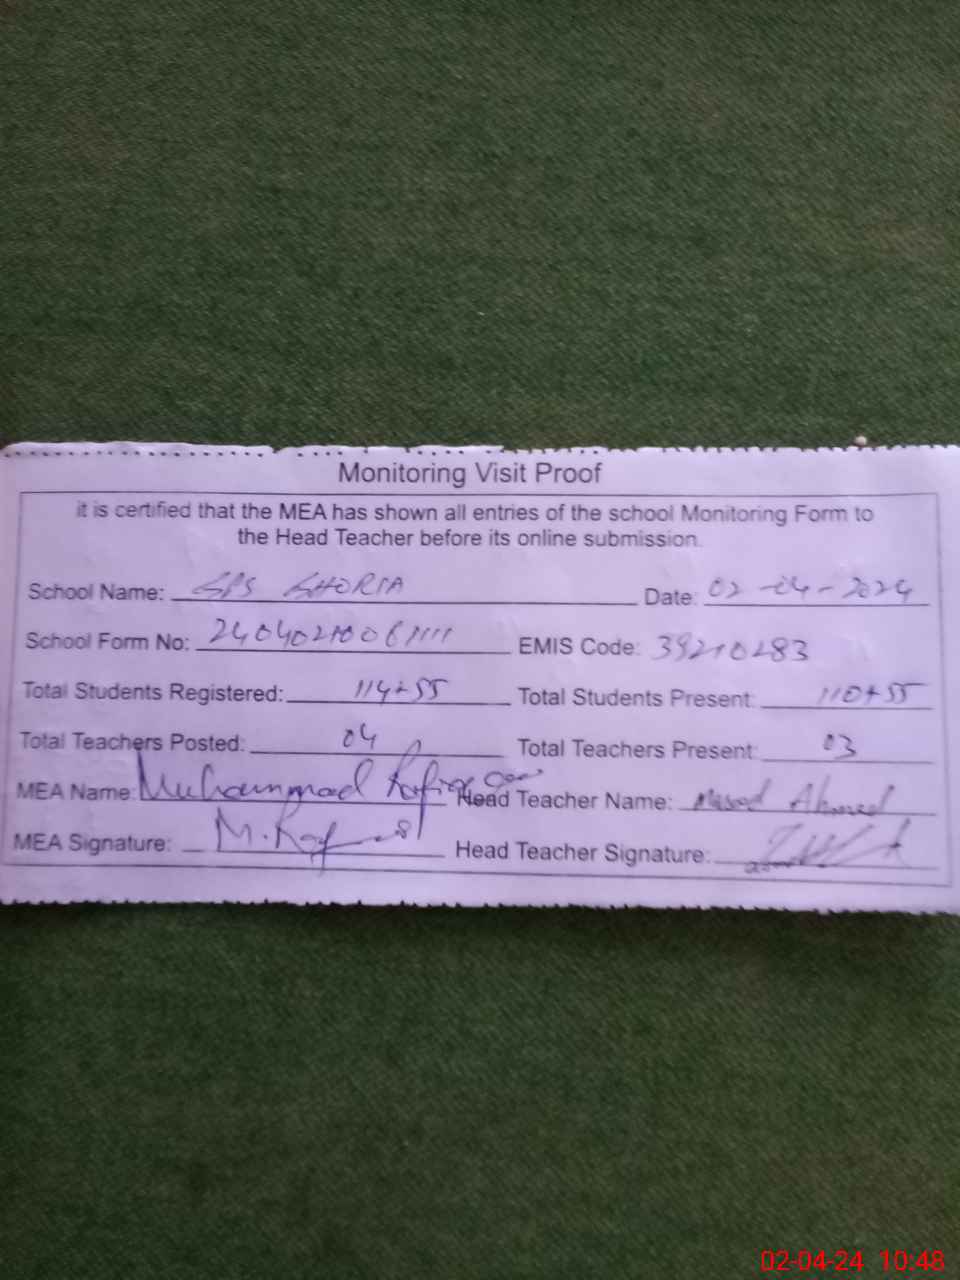 Monitoring Visit Proof
it is certified that the MEA has shown all entries of the school Monitoring Form to
the Head Teacher before its online submission.
School Name: GPS GHORIA Date: 02-04-2024
School Form No: EMIS Code: 39210283
Total Students Registered: 114+55 Total Students Present: 110+55
Total Teachers Posted: 04 Total Teachers Present: 03
MEA Name: Muhammad Head Teacher Name: Ahmed
MEA Signature: Head Teacher Signature:
02-04-24 10:48